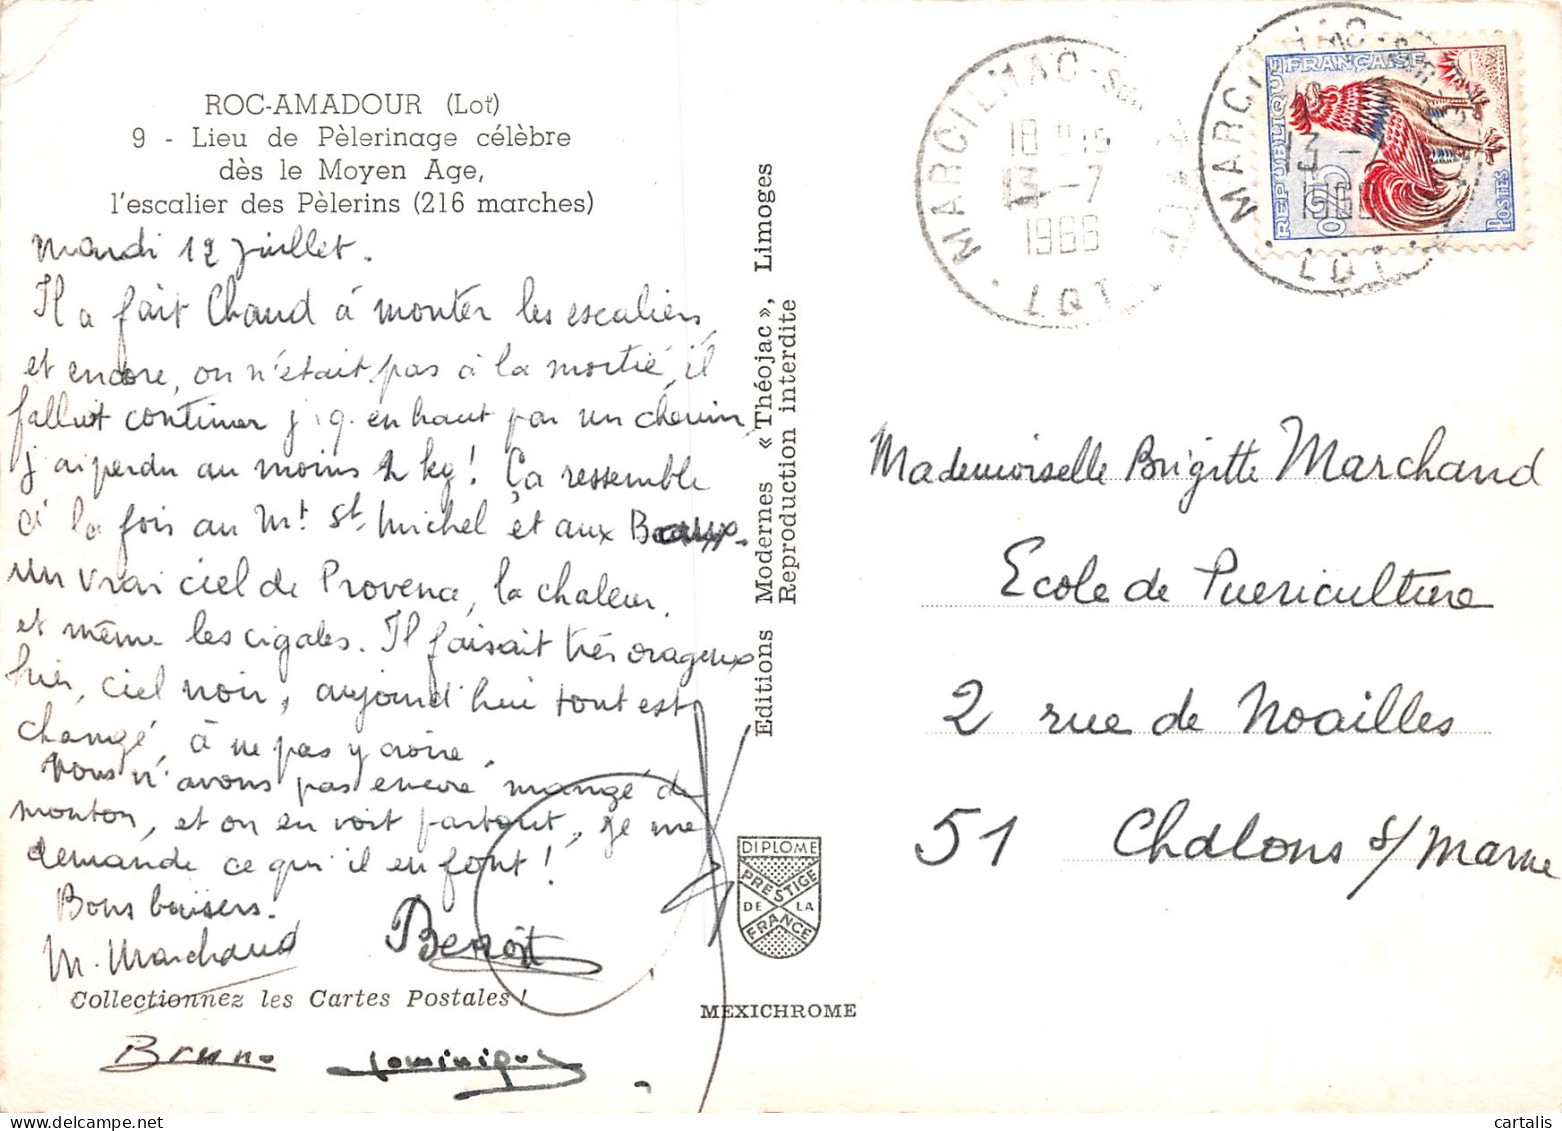 ROC-AMADOUR (Lot)
9 - Lieu de Pèlerinage célèbre
dès le Moyen Age,
l'escalier des Pèlerins (216 marches)
Mardi 12 Juillet.
Il a fait Chaud à monter les escaliers,
et encore, on n'était pas à la moitié, il
fallut continuer j.q. en haut par un chemin,
j'ai perdu au moins 2 kg! Ça ressemble
à la fois au Mt St Michel et aux Baux.
un vrai ciel de Provence, la chaleur,
et même les cigales. Il faisait très orageux
hier, ciel noir, aujourd'hui tout est
changé, à ne pas y croire.
Nous n'avons pas encore mangé de
mouton, et on en voit partout, je me
demande ce qu'il en font!
Bons baisers.
M. Marchand
Benoît
Collectionnez les Cartes Postales !
Bruno
Dominique
Editions Modernes « Théojac », Limoges
Reproduction interdite
DIPLOME
PRESTIGE
DE LA
FRANCE
MEXICHROME
MARCILHAC-Sur
18 H 15
13 -7
1966
LOT
REPUBLIQUE FRANÇAISE
0,25
POSTES
MARCILHAC-Sur
13 -7
1966
LOT
Mademoiselle Brigitte Marchand
Ecole de Puericulture
2 rue de Noailles
51 Chalons s/ Marne
cartalis